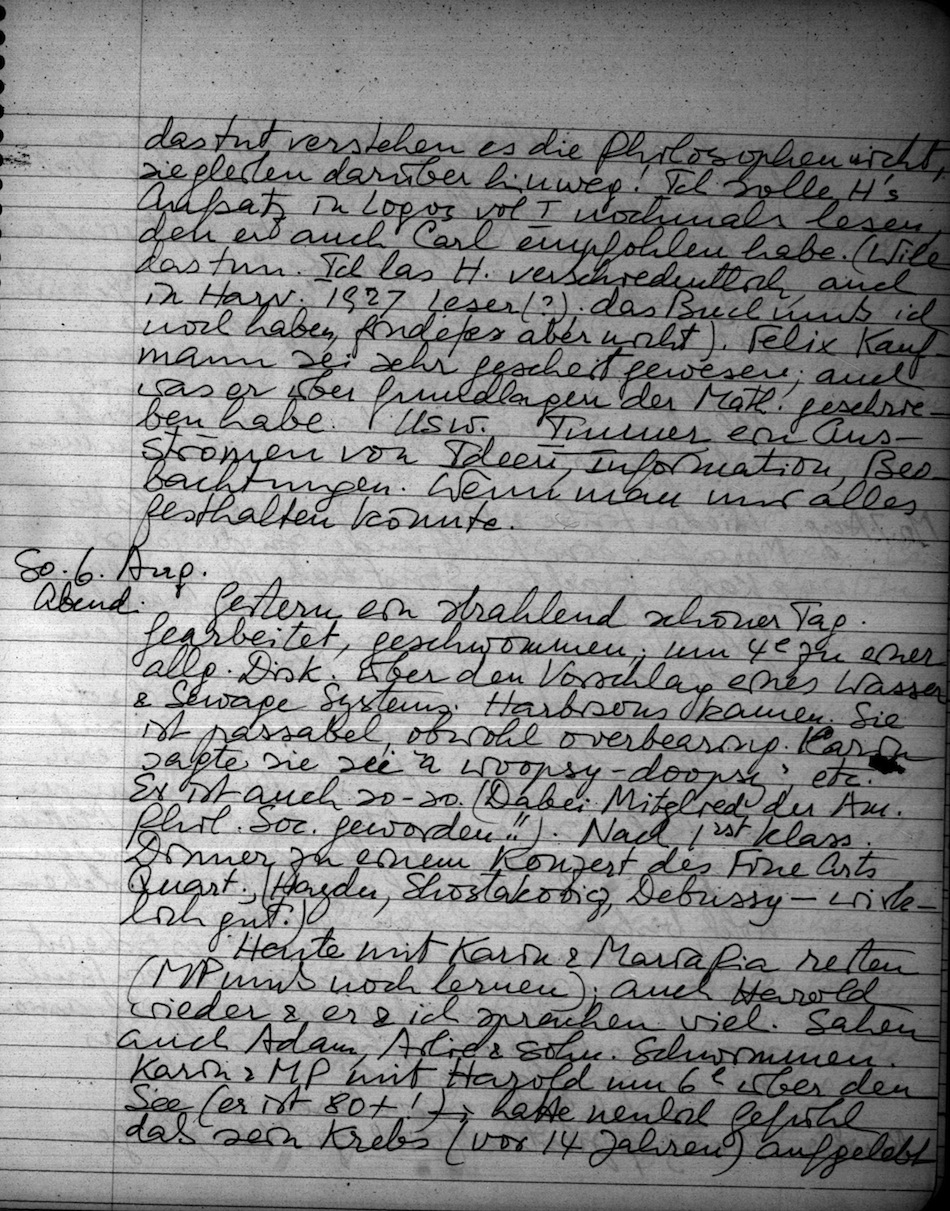 das tut verstehen es die Philosophen nicht,
sie gleiten darüber hinweg! Ich solle H's
Aufsatz in Logos vol I nochmals lesen,
den er auch Carl empfohlen habe. (Will
das tun. Ich las H. verschiedentlich, auch
in Harv. 1927 Leser (?). das Buch muss ich
noch haben, finde es aber nicht). Felix Kauf-
mann sei sehr gescheit gewesen; auch
was er über Grundlagen der Math. geschrie-
ben habe. Usw. Immer ein Aus-
strömen von Ideen, Information, Beo-
bachtungen. Wenn man nur alles
festhalten könnte.
So. 6. Aug.
Abend. Gestern ein strahlend schöner Tag.
Gearbeitet, geschwommen; um 4e zu einer
allg. Disk. über den Vorschlag eines Wasser
& Sewage Systems. Harbisons kamen. Sie
ist passabel, obwohl overbearing. Karin
sagte, sie sei "a woopsy-doopsy", etc.
Er ist auch so-so. (Dabei Mitglied der Am.
Phil. Soc. geworden"!). Nach 1rst klass.
Dinner zu einem Konzert des Fine Arts
Quart. (Haydn, Shostakovic, Debussy – wirk-
lich gut.)
Heute mit Karin & Maria Pia reiten
(MP muss noch lernen); auch Harold
wieder & er & ich sprachen viel. Sahen
auch Adam, Arlie & Sohn. Schwimmen.
Karin & MP mit Harold um 6e über den
See (er ist 80+!); hatte neulich Gefühl
dass sein Krebs (vor 14 Jahren) aufgelebt